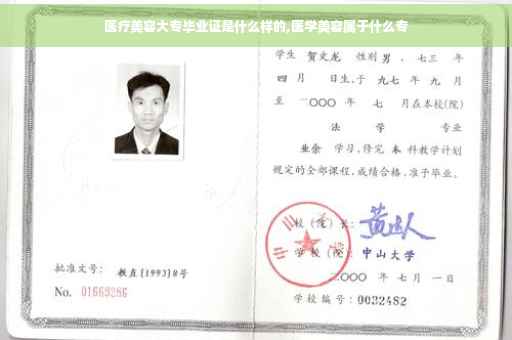 医疗美容大专毕业证是什么样的,医学美容属于什么专
学生 贺文龙 性别 男 、七三 年
四 月 日生,于 九七 年 九 月
至 二〇〇〇 年 七 月在本校(院)
法 学 专业
业余 学习,修完 本 科教学计划
规定的全部课程,成绩合格,准予毕业。
校(院)长:
学校(院): 中山大学
二〇〇〇 年 七 月 一 日
学校编号:0032482
批准文号: 教直[1993]8号
No. 01669286